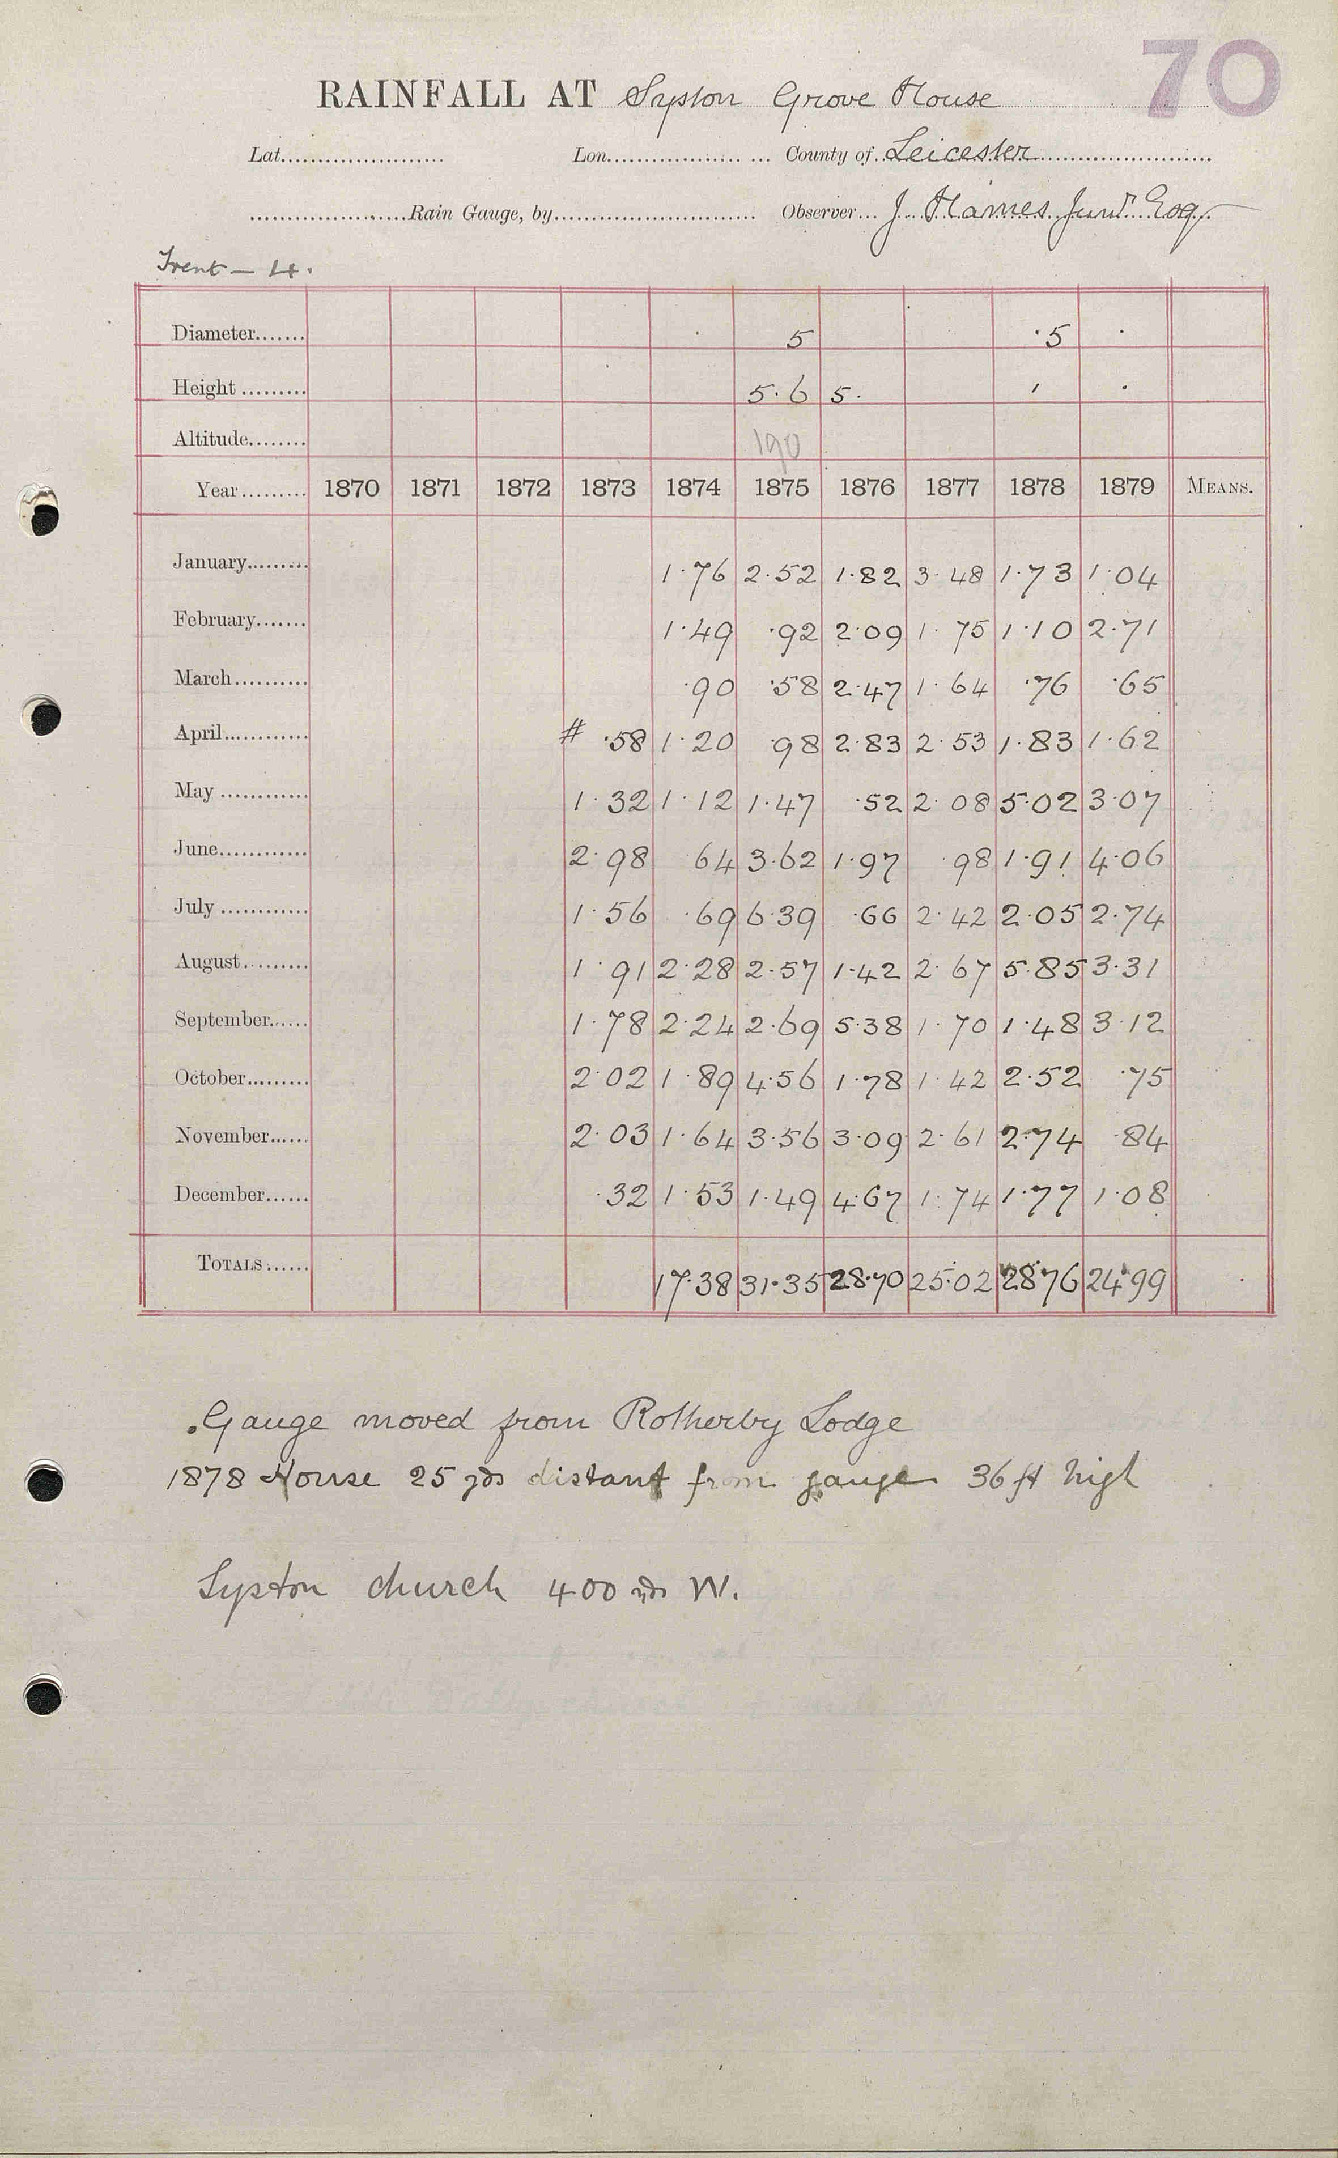 70
RAINFALL AT Syston Grove House
Lat. Lon. County of Leicester
Rain Gauge, by Observer J. Hames Junr. Esq.
Trent – 4.
Diameter 5 ·5
Height 5·6 5·
Altitude 190
Year 1870 1871 1872 1873 1874 1875 1876 1877 1878 1879 MEANS.
January 1·76 2·52 1·82 3·48 1·73 1·04
February 1·49 ·92 2·09 1·75 1·10 2·71
March ·90 ·58 2·47 1·64 ·76 ·65
April # ·58 1·20 98 2·83 2·53 1·83 1·62
May 1·32 1·12 1·47 ·52 2·08 5·02 3·07
June 2·98 64 3·62 1·97 ·98 1·91 4·06
July 1·56 ·69 6·39 ·66 2·42 2·05 2·74
August 1·91 2·28 2·57 1·42 2·67 5·85 3·31
September 1·78 2·24 2·69 5·38 1·70 1·48 3·12
October 2·02 1·89 4·56 1·78 1·42 2·52 ·75
November 2·03 1·64 3·56 3·09 2·61 2·74 ·84
December ·32 1·53 1·49 4·67 1·74 1·77 1·08
TOTALS 17·38 31·35 28·70 25·02 28·76 24·99
Gauge moved from Rotherby Lodge
1878 House 25 yds distant from gauge 36 ft high
Syston church 400 yds W.